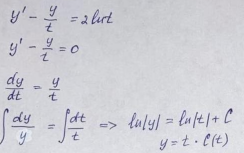 y' - y/t = 2lnt
y' - y/t = 0
dy/dt = y/t
∫ dy/y = ∫ dt/t => ln|y| = ln|t| + C
y = t · C(t)